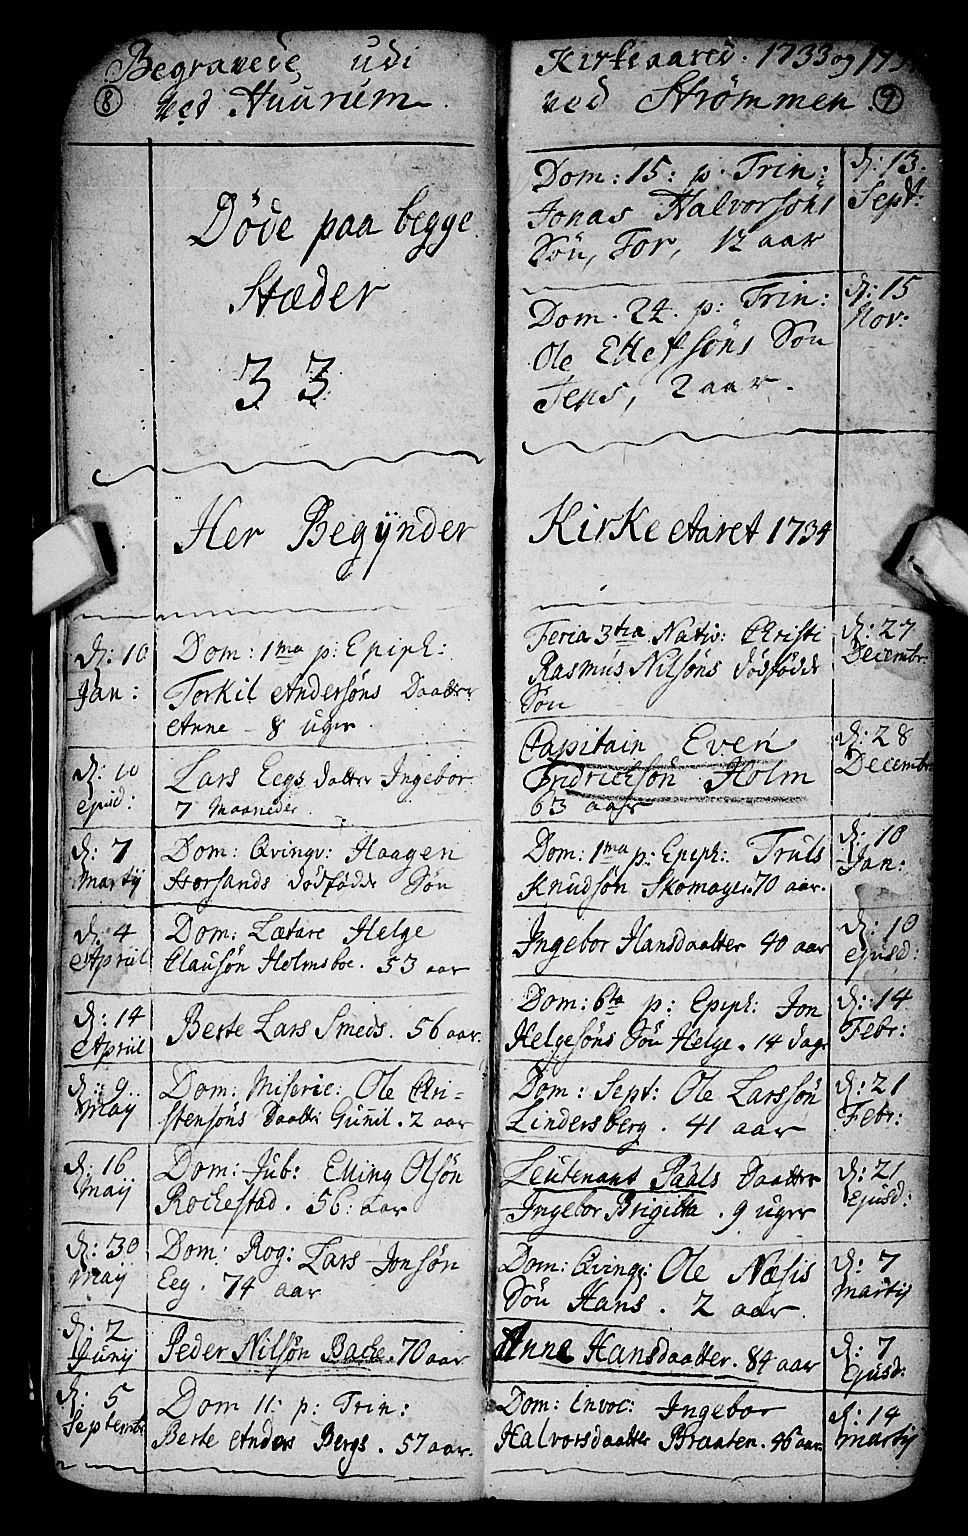 Begravede udi
8 ved Huurum
Døde paa begge
Stæder
33
Her Begÿnder
d: 10 Dom: 1ma p: Epiph:
Jan: Torkil Andersøns Daatter
Anne - 8 uger.
d: 10 Lars Eegs datter Ingebor
ejusd: 7 Maaneder
d: 7 Dom: Qvinqv: Haagen
Martij Horsands dødfødde Søn
d: 4 Dom: Lætare Helge
Apriil Clausøn Holmsboe. 53 aar
d: 14 Berte Lars Smeds. 56 aar.
Apriil
d: 9 Dom: Miseric: Ole Chri=
Maÿ stensøns Daatter Gunil. 2 aar
d: 16 Dom: Jub: Elling Olsøn
Maij Rochestad. 56: aar
d: 30 Dom: Rog: Lars Jonsøn
Maij Eeg. 74 aar
d: 2 Peder Nilsøn Bache. 70 aar
Junij
d: 5 Dom 11: p: Trin:
Septembr Berte Anders Bergs. 57 aar.
Kirkeaared. 1733 og
ved Strømmen 9
Dom: 15: p. Trin: d: 13:
Jonas Halvorsøns Sept:
Søn, Tor, 12 aar
Dom. 24. p: Trin: d: 15
Ole Ellefsøns Søn Nov:
Jens, 2 aar.
Kirke Aaret 1734
Feria 3tia Nativ: Christi d: 27
Rasmus Nilsøns dødfødde Decembr:
Søn
Capitain Even d: 28
Fridrichsøn Holm Decembr
63 aar
Dom: 1ma p: Epiph: Truls d: 10
Knudsøn Skomager. 70 aar. Jan:
Ingebor Hansdaatter 40 aar d: 10
ejusd:
Dom: 6ta p: Epiph: Jon d: 14
Helgesøns Søn Helge. 14 dage Febr:
Dom: Sept: Ole Larssøn d: 21
Lindersberg. 41 aar Febr:
Leutenant Pauls Daatter d: 21
Ingebor Brigitta. 9 uger Ejusd:
Dom: Qvinqv: Ole Næsis d: 7
Søn Hans. 2 aar. Martij
Anne Hansdaatter. 84 aar d: 7
Ejusd:
Dom: Invoc: Ingebor d: 14
Halvorsdaatter Braaten. 46 aar Martij